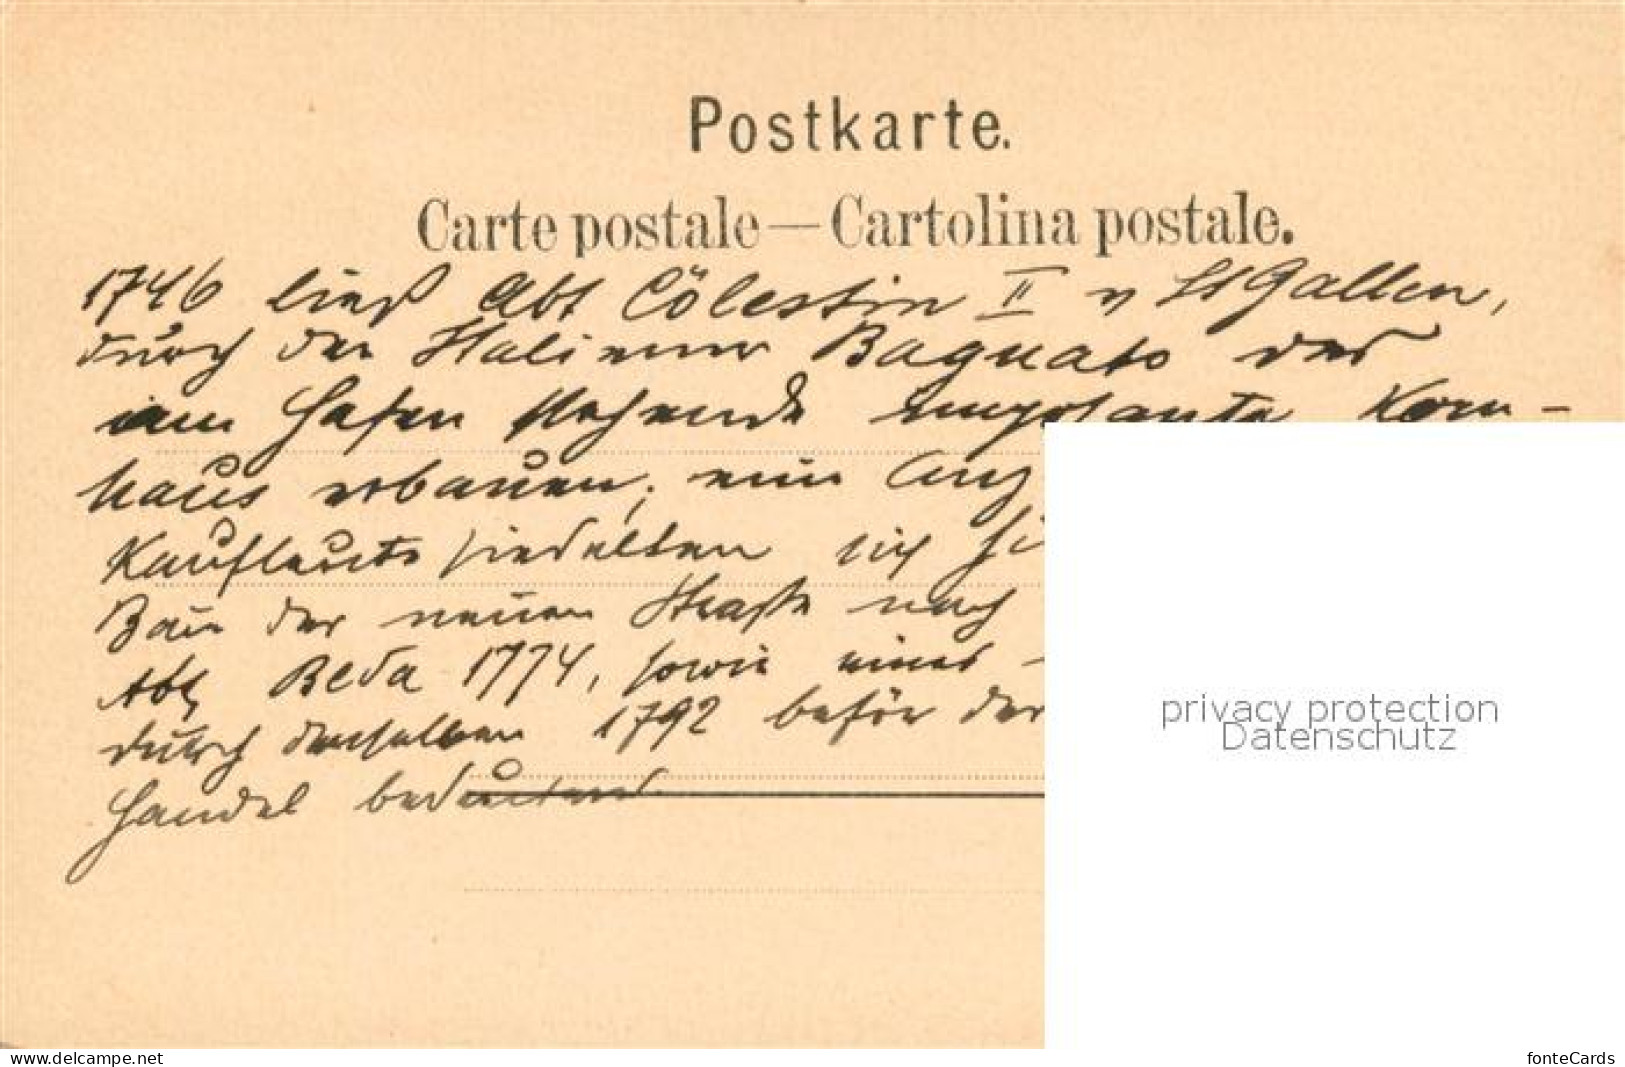 Postkarte.
Carte postale — Cartolina postale.
1746 ließ Abt Cölestin II v St Gallen,
durch den Italiener Bagnato das
am Hafen stehende imposante Korn-
haus erbauen; ein Anz
Kaufleute siedelten sich hi
Bau der neuen Straße nach
Abt Beda 1774, sowie eines
durch denselben 1792 beför der
Handel bedeutend.
privacy protection
Datenschutz
www.delcampe.net
fonteCards